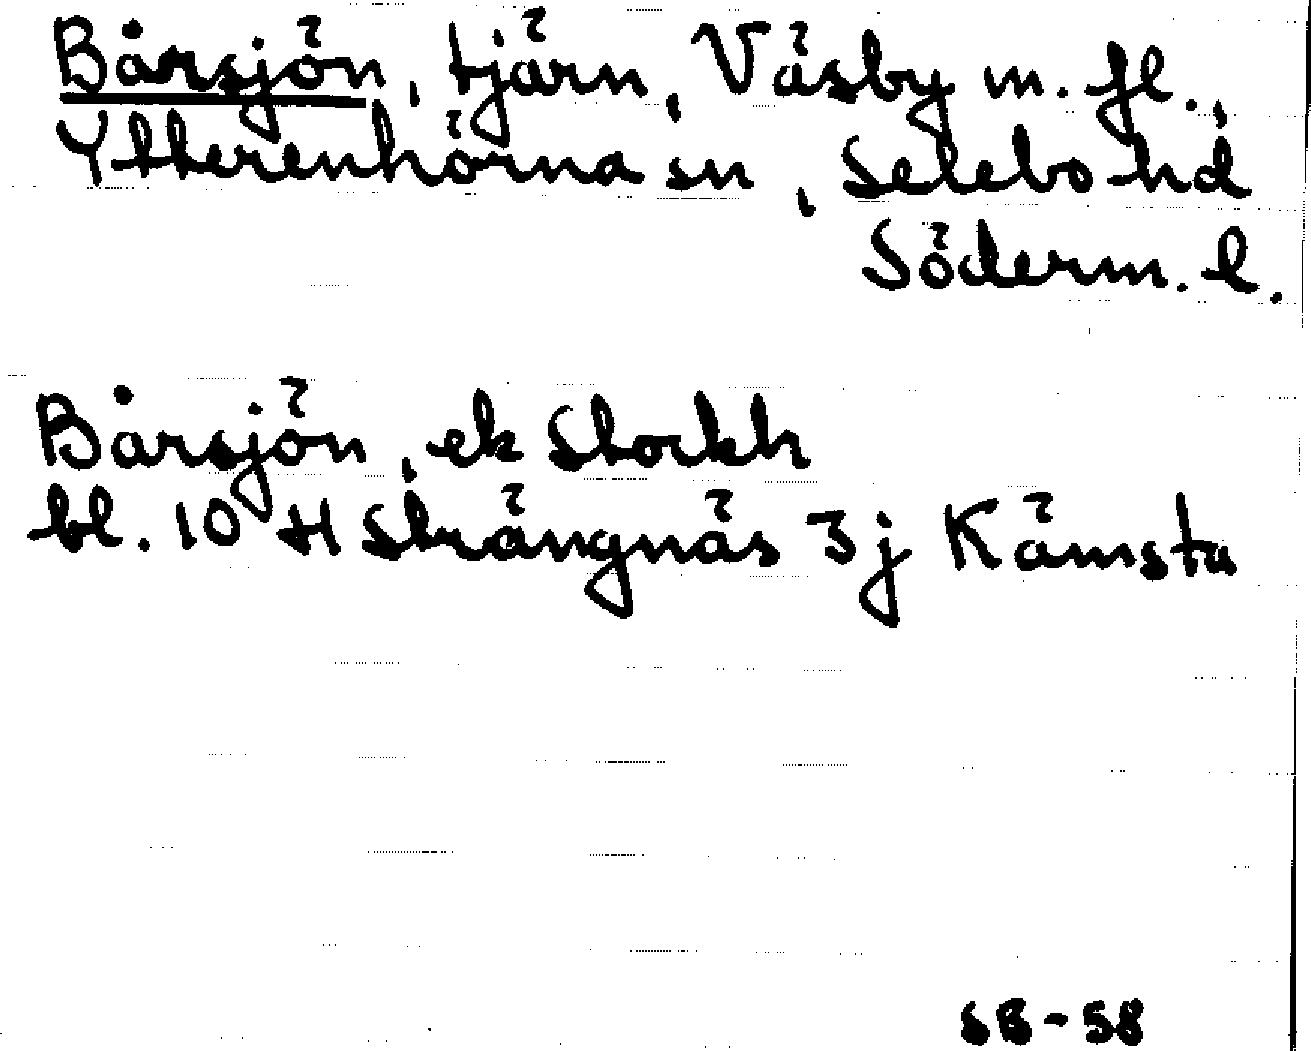 Bårsjön, tjärn, Väsby m. fl.,
Ytterenhörna sn, Selebo hd
Söderm. l.
Bårsjön, ek Stockh
bl. 10 H Strängnäs 3 j Kämsta
SB-58